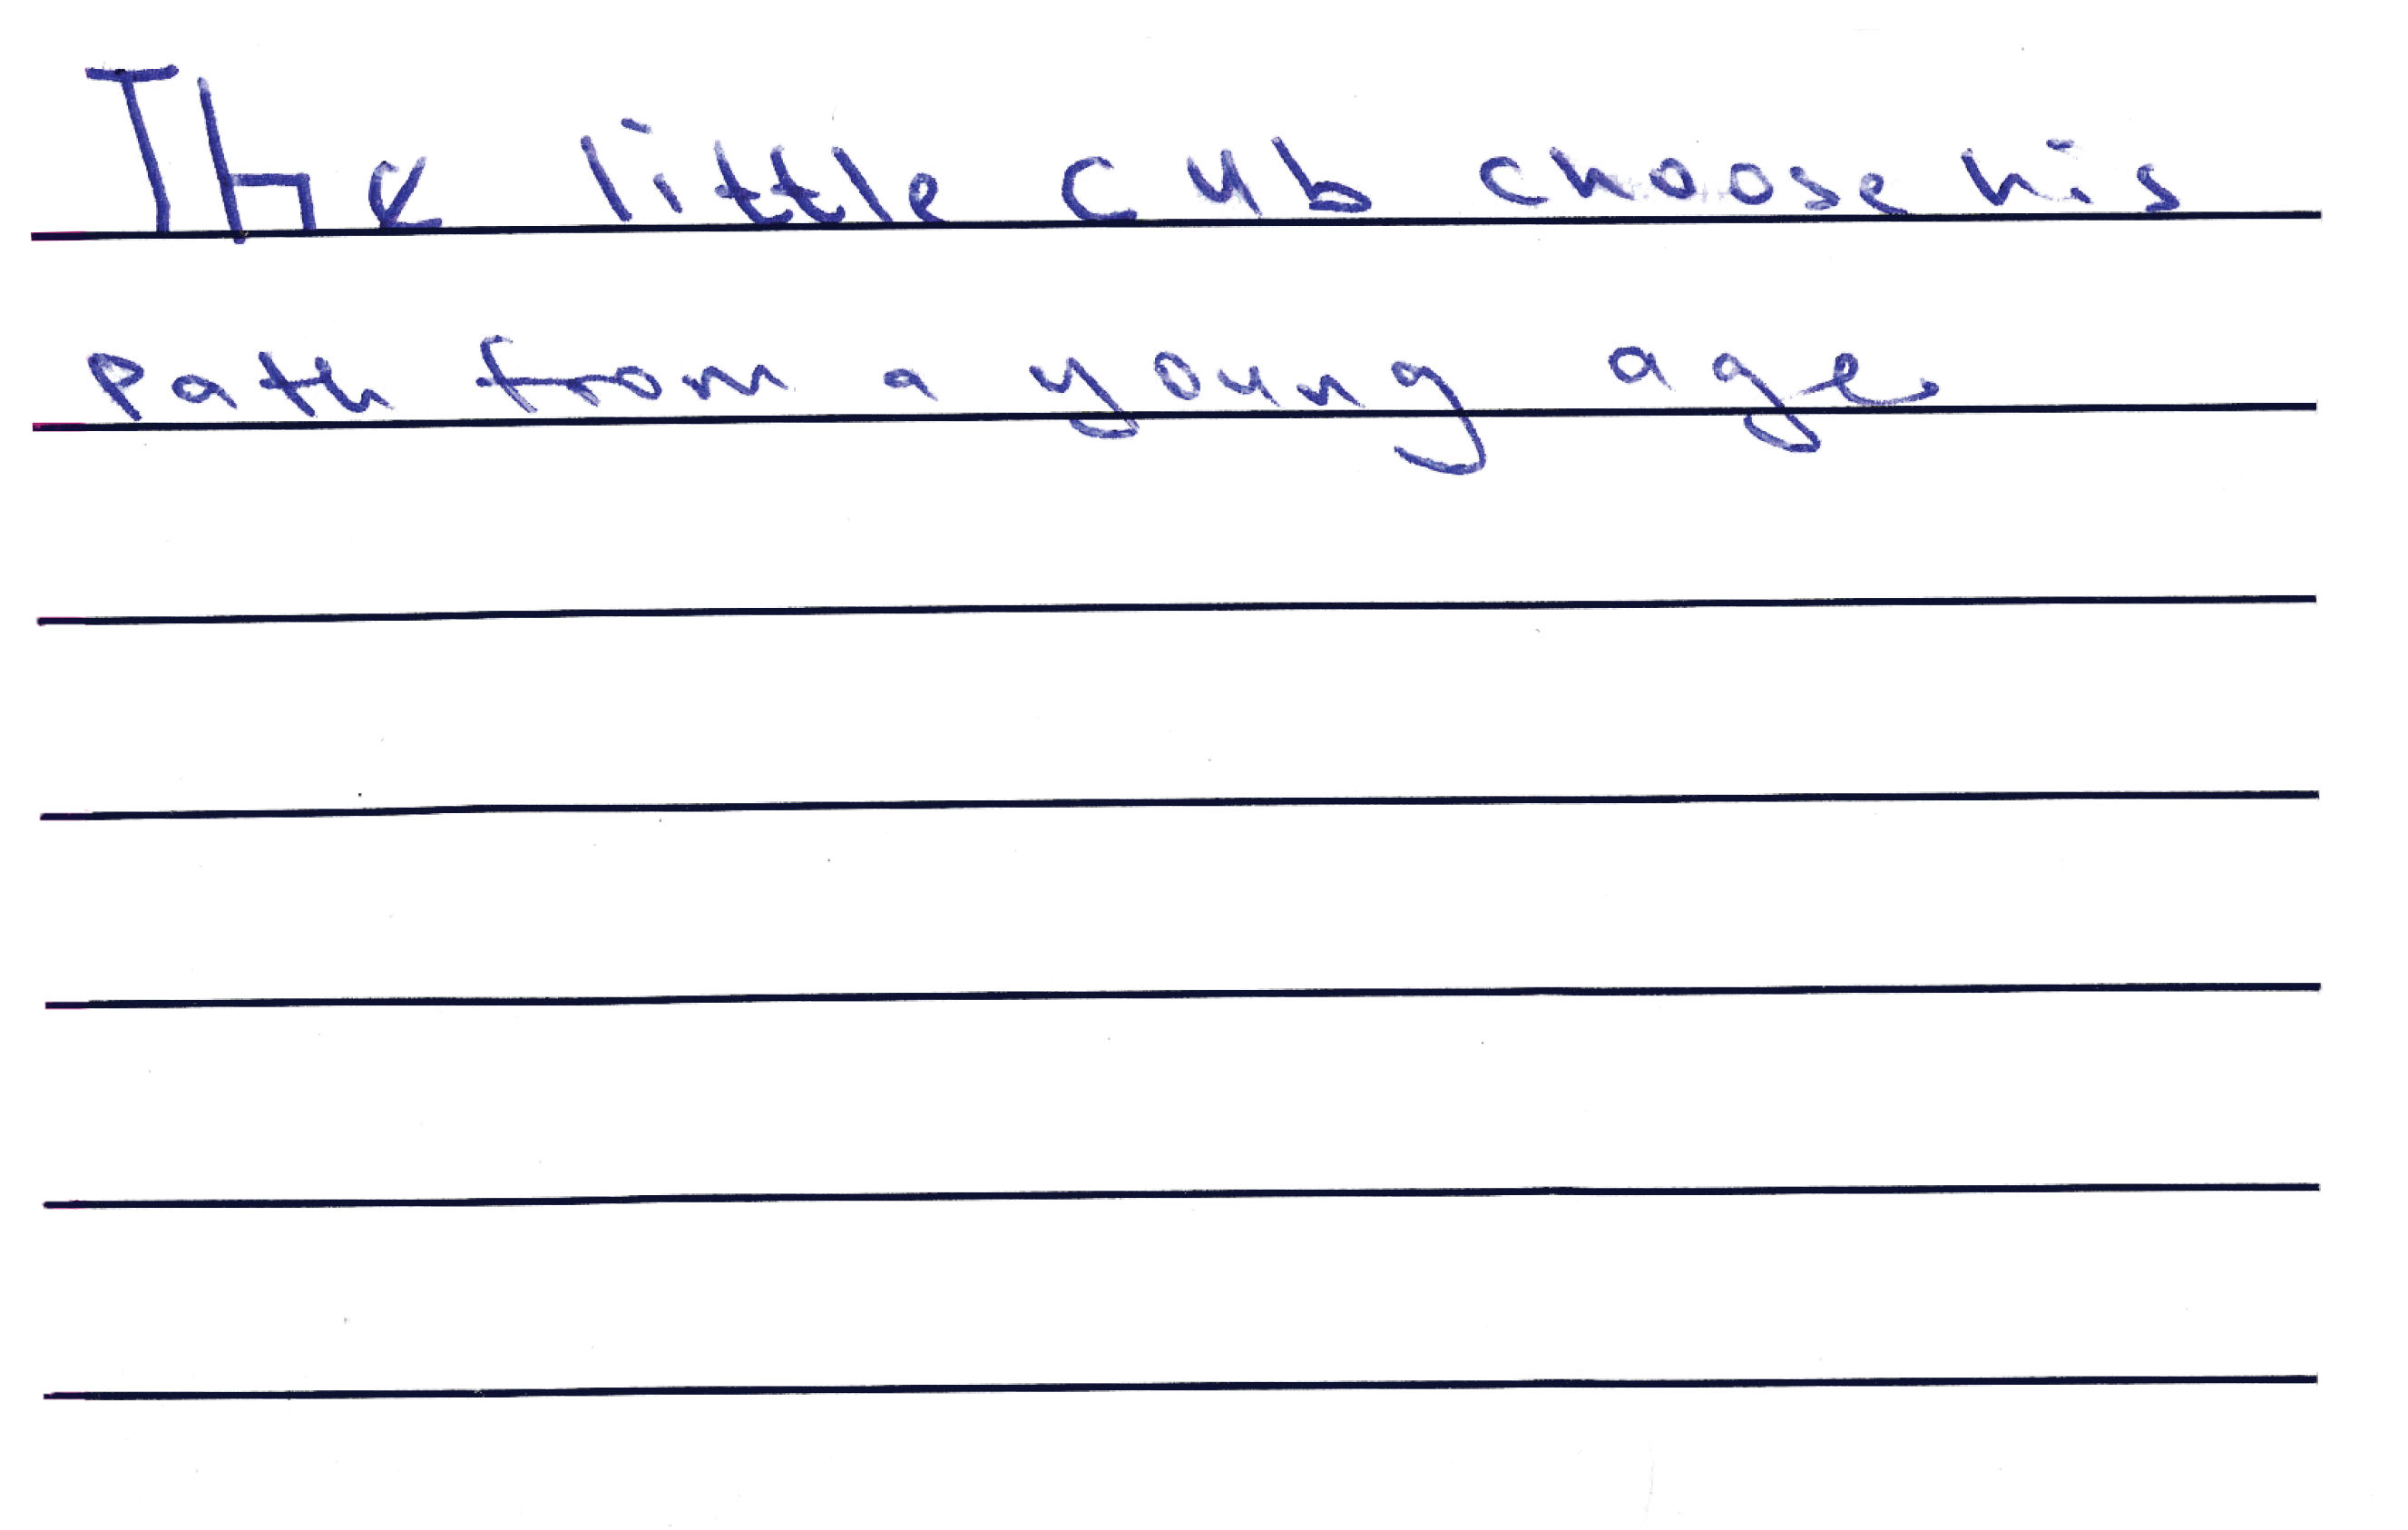 The little cub choose his
path from a young age.